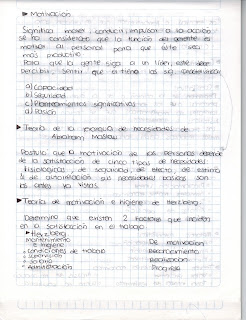 ► Motivación
Significa mover, conducir, impulsar a la acción.
Se ha considerado que la función del gerente es
motivar al personal para que este sea
más productivo.
Para que la gente siga a un líder, este debe
percibir, sentir que él tiene las sig. características
a) Capacidad
b) Seguridad
c) Planteamientos significativos
d) Pasión
► Teoría de la jerarquía de necesidades de
Abraham Maslow.
Postula que la motivación de las personas depende
de la satisfacción de cinco tipos de necesidades
fisiológicas, de seguridad, de afecto, de estima
y de autorrealización sus necesidades básicas son
las antes ya vistas.
► Teoría de motivación e higiene de Herzberg.
Determina que existen 2 factores que inciden
en la satisfacción en el trabajo.
• Herzberg
Mantenimiento
e higiene
De motivación
• Condiciones de trabajo
Reconocimiento
• Supervisión
Realización
• Salario
Progreso
• Administración